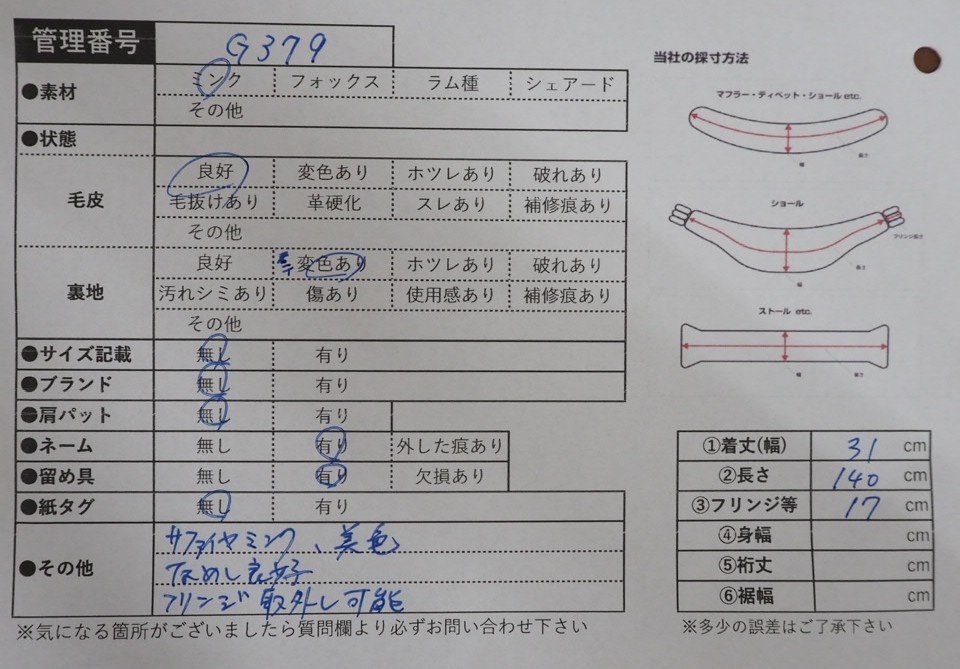 管理番号 G379
●素材 ミンク フォックス ラム種 シェアード
その他
●状態
毛皮 良好 変色あり ホツレあり 破れあり
毛抜けあり 革硬化 スレあり 補修痕あり
その他
裏地 良好 変色あり ホツレあり 破れあり
汚れシミあり 傷あり 使用感あり 補修痕あり
その他
●サイズ記載 無し 有り
●ブランド 無し 有り
●肩パット 無し 有り
●ネーム 無し 有り 外した痕あり
●留め具 無し 有り 欠損あり
●紙タグ 無し 有り
●その他 サファイヤミンク、美色
なめし良好
フリンジ取外し可能
※気になる箇所がございましたら質問欄より必ずお問い合わせ下さい
当社の採寸方法
マフラー・ティペット・ショール etc.
幅
長さ
ショール
フリンジ長さ
長さ
幅
ストール etc.
幅
長さ
①着丈(幅) 31 cm
②長さ 140 cm
③フリンジ等 17 cm
④身幅 cm
⑤裄丈 cm
⑥裾幅 cm
※多少の誤差はご了承下さい